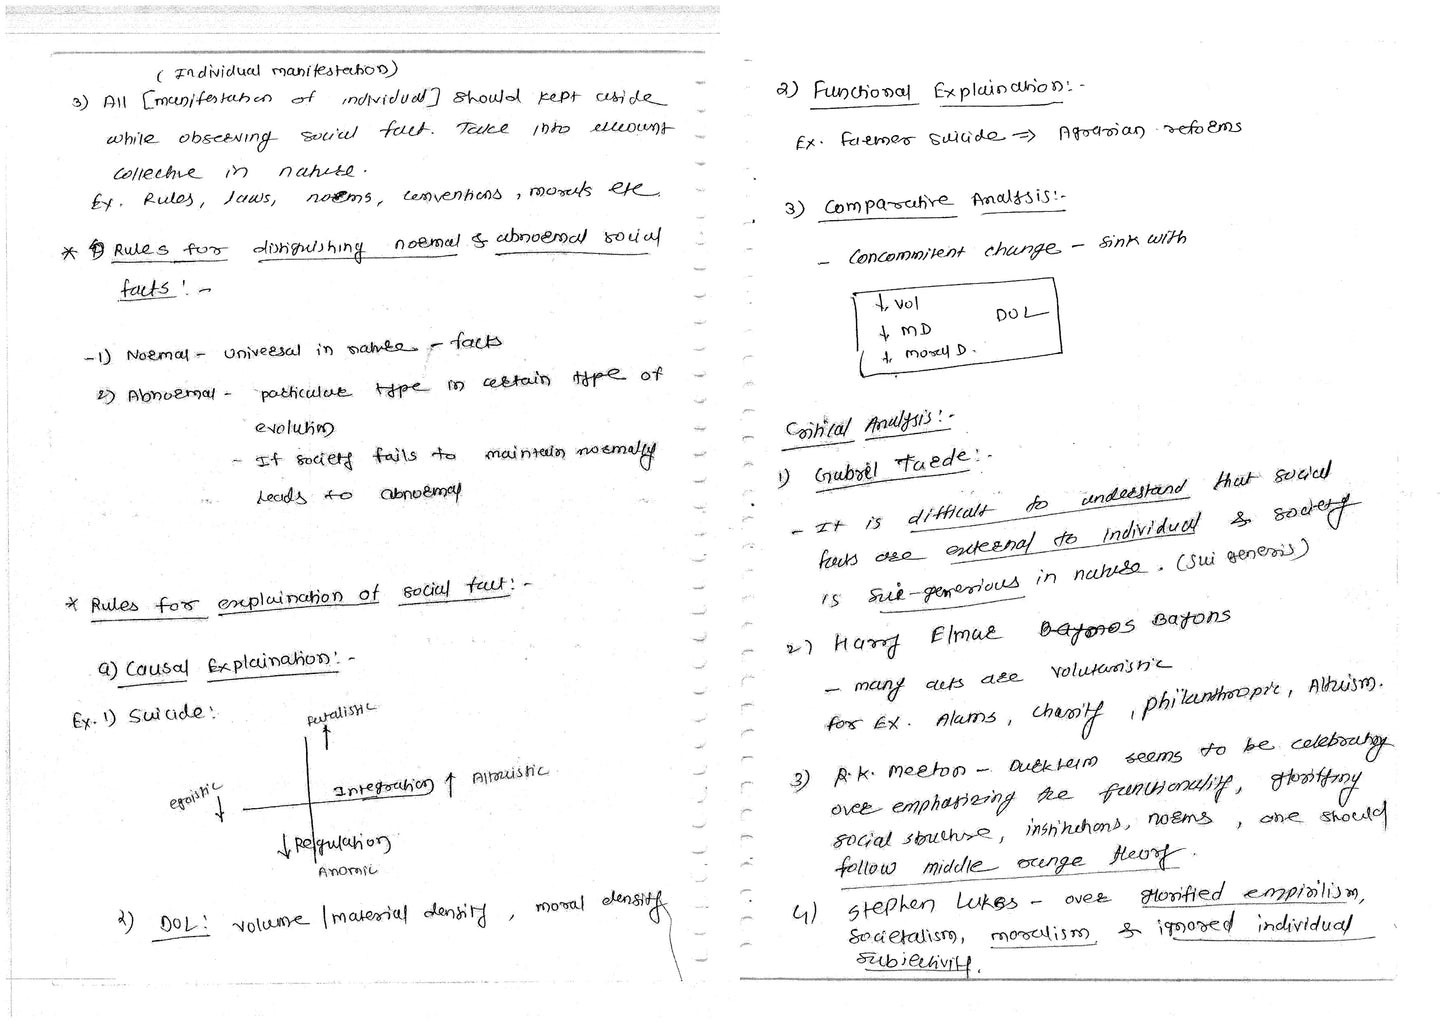 ( Individual manifestation)
3) All [manifestation of individual] should kept aside
while observing social fact. Take into account
collective in nature.
Ex. Rules, laws, norms, conventions, morals etc.
* Rules for distiguishing normal & abnormal social
facts: -
-1) Normal - universal in nature - facts
2) Abnormal - particular type in certain type of
evolution
- If society fails to maintain normally
leads to abnormal
* Rules for explaination of social fact: -
a) Causal Explaination: -
Ex. 1) Suicide:
fatalistic
↑
egoistic
↓
Integration ↑ Altruistic
↓ Regulation
Anomic
2) DOL: volume / material density, moral density
2) Functional Explaination: -
Ex. Farmer suicide ⇒ Agrarian reforms
3) Comparative Analysis:-
- Concommitent change - sink with
vol
DOL
MD
moral D.
Critical Analysis: -
1) Gabriel Tarde: -
- It is difficult to understand that social
facts are external to individual & society
is sui-generious in nature. (Sui generis)
2) Harry Elmar Bayons
- many acts are volutaristic
for Ex. Alams, charity, philanthropic, Altruism.
3) R.K. Merton - Durkheim seems to be celebrating
over emphasizing the functionality, glorifying
social structure, institutions, norms, one should
follow middle range theory.
4) Stephen Lukes - over glorified empirilism,
societalism, moralism & ignored individual
subjectivity.